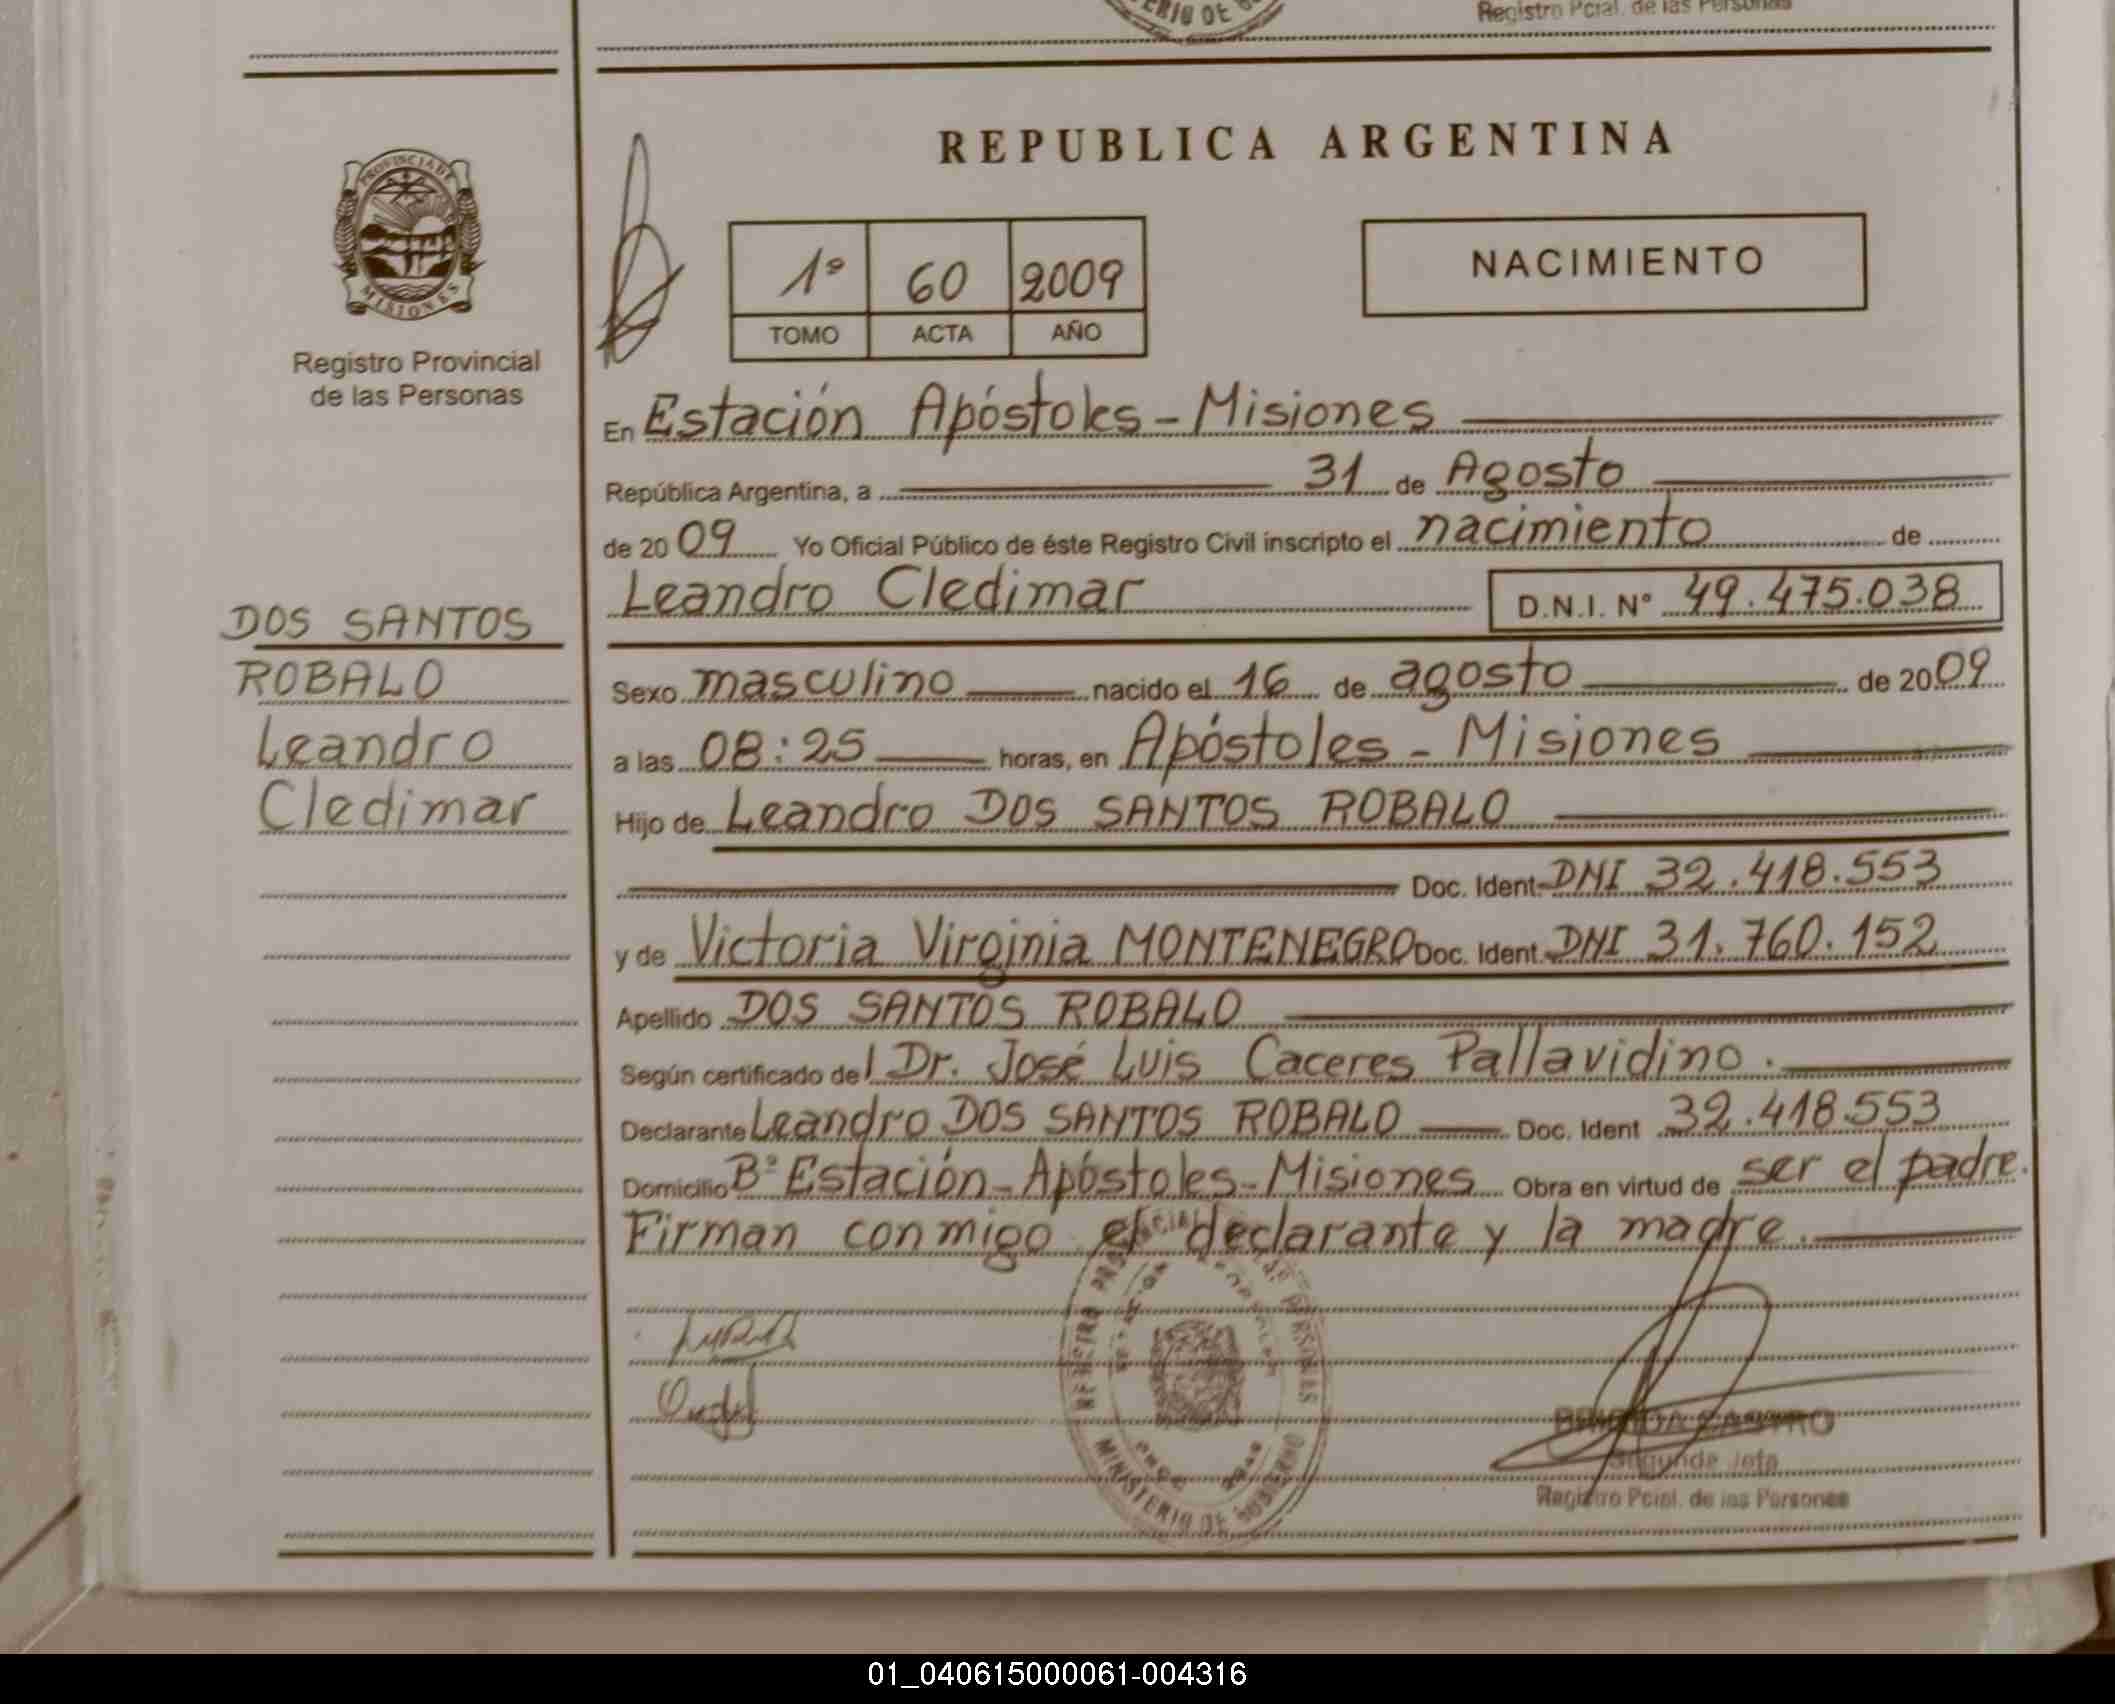 Registro Pcial. de las Personas
REPUBLICA ARGENTINA
PROVINCIA DE
MISIONES
Registro Provincial
de las Personas
1º 60 2009
TOMO ACTA AÑO
NACIMIENTO
En Estación Apóstoles - Misiones
República Argentina, a 31 de Agosto
de 2009 Yo Oficial Público de éste Registro Civil inscripto el nacimiento de
Leandro Cledimar D.N.I. Nº 49.475.038
DOS SANTOS
ROBALO
Leandro
Cledimar
Sexo masculino nacido el 16 de agosto de 2009
a las 08:25 horas, en Apóstoles - Misiones
Hijo de Leandro DOS SANTOS ROBALO
Doc. Ident. DNI 32.418.553
y de Victoria Virginia MONTENEGRO Doc. Ident. DNI 31.760.152
Apellido DOS SANTOS ROBALO
Según certificado del Dr. José Luis Caceres Pallavidino.
Declarante Leandro DOS SANTOS ROBALO Doc. Ident 32.418.553
Domicilio Bº Estación - Apóstoles - Misiones Obra en virtud de ser el padre.
Firman conmigo el declarante y la madre.
MINISTERIO DE GOBIERNO
CASTRO
Segunda Jefa
Registro Pcial. de las Personas
01_040615000061-004316